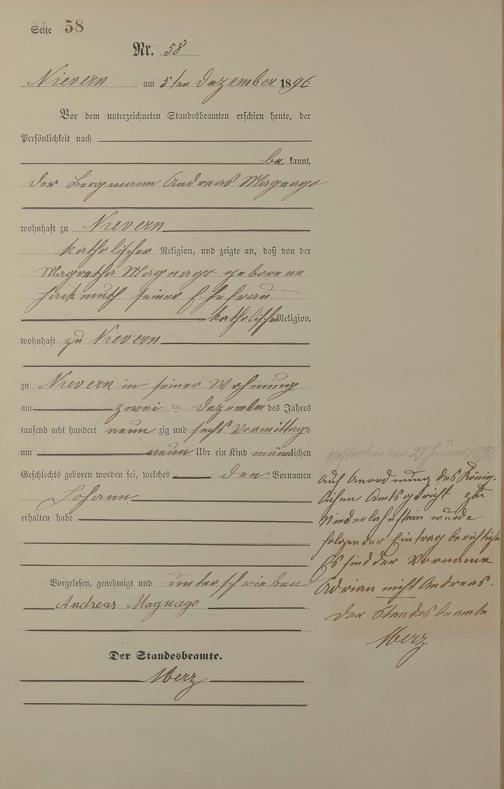 Seite 58
Nr. 58
Nievern am 5ten Dezember 1896
Vor dem unterzeichneten Standesbeamten erschien heute, der
Persönlichkeit nach
be kannt,
der Bergmann Andreas Magnago
wohnhaft zu Nievern
katholischer Religion, und zeigte an, daß von der
Magretha Magnago geborene
Hackmuth seiner Ehefrau
katholische Religion,
wohnhaft zu Nievern
zu Nievern in seiner Wohnung
am zwei = Dezember des Jahres
tausend acht hundert neun zig und sechs Vormittags
um neun Uhr ein Kind männlichen
Geschlechts geboren worden sei, welches den Vornamen
Johann
erhalten habe
Vorgelesen, genehmigt und unterschrieben
Andreas Magnago
Der Standesbeamte.
Merz
den 29
Auf Anordnung des König-
lichen Amtsgericht zu
Niederlahnstein wurde
folgender Eintrag berichtigt
Es sind der Vorname
Adrian nicht Andreas.
Der Standesbeamte
Merz